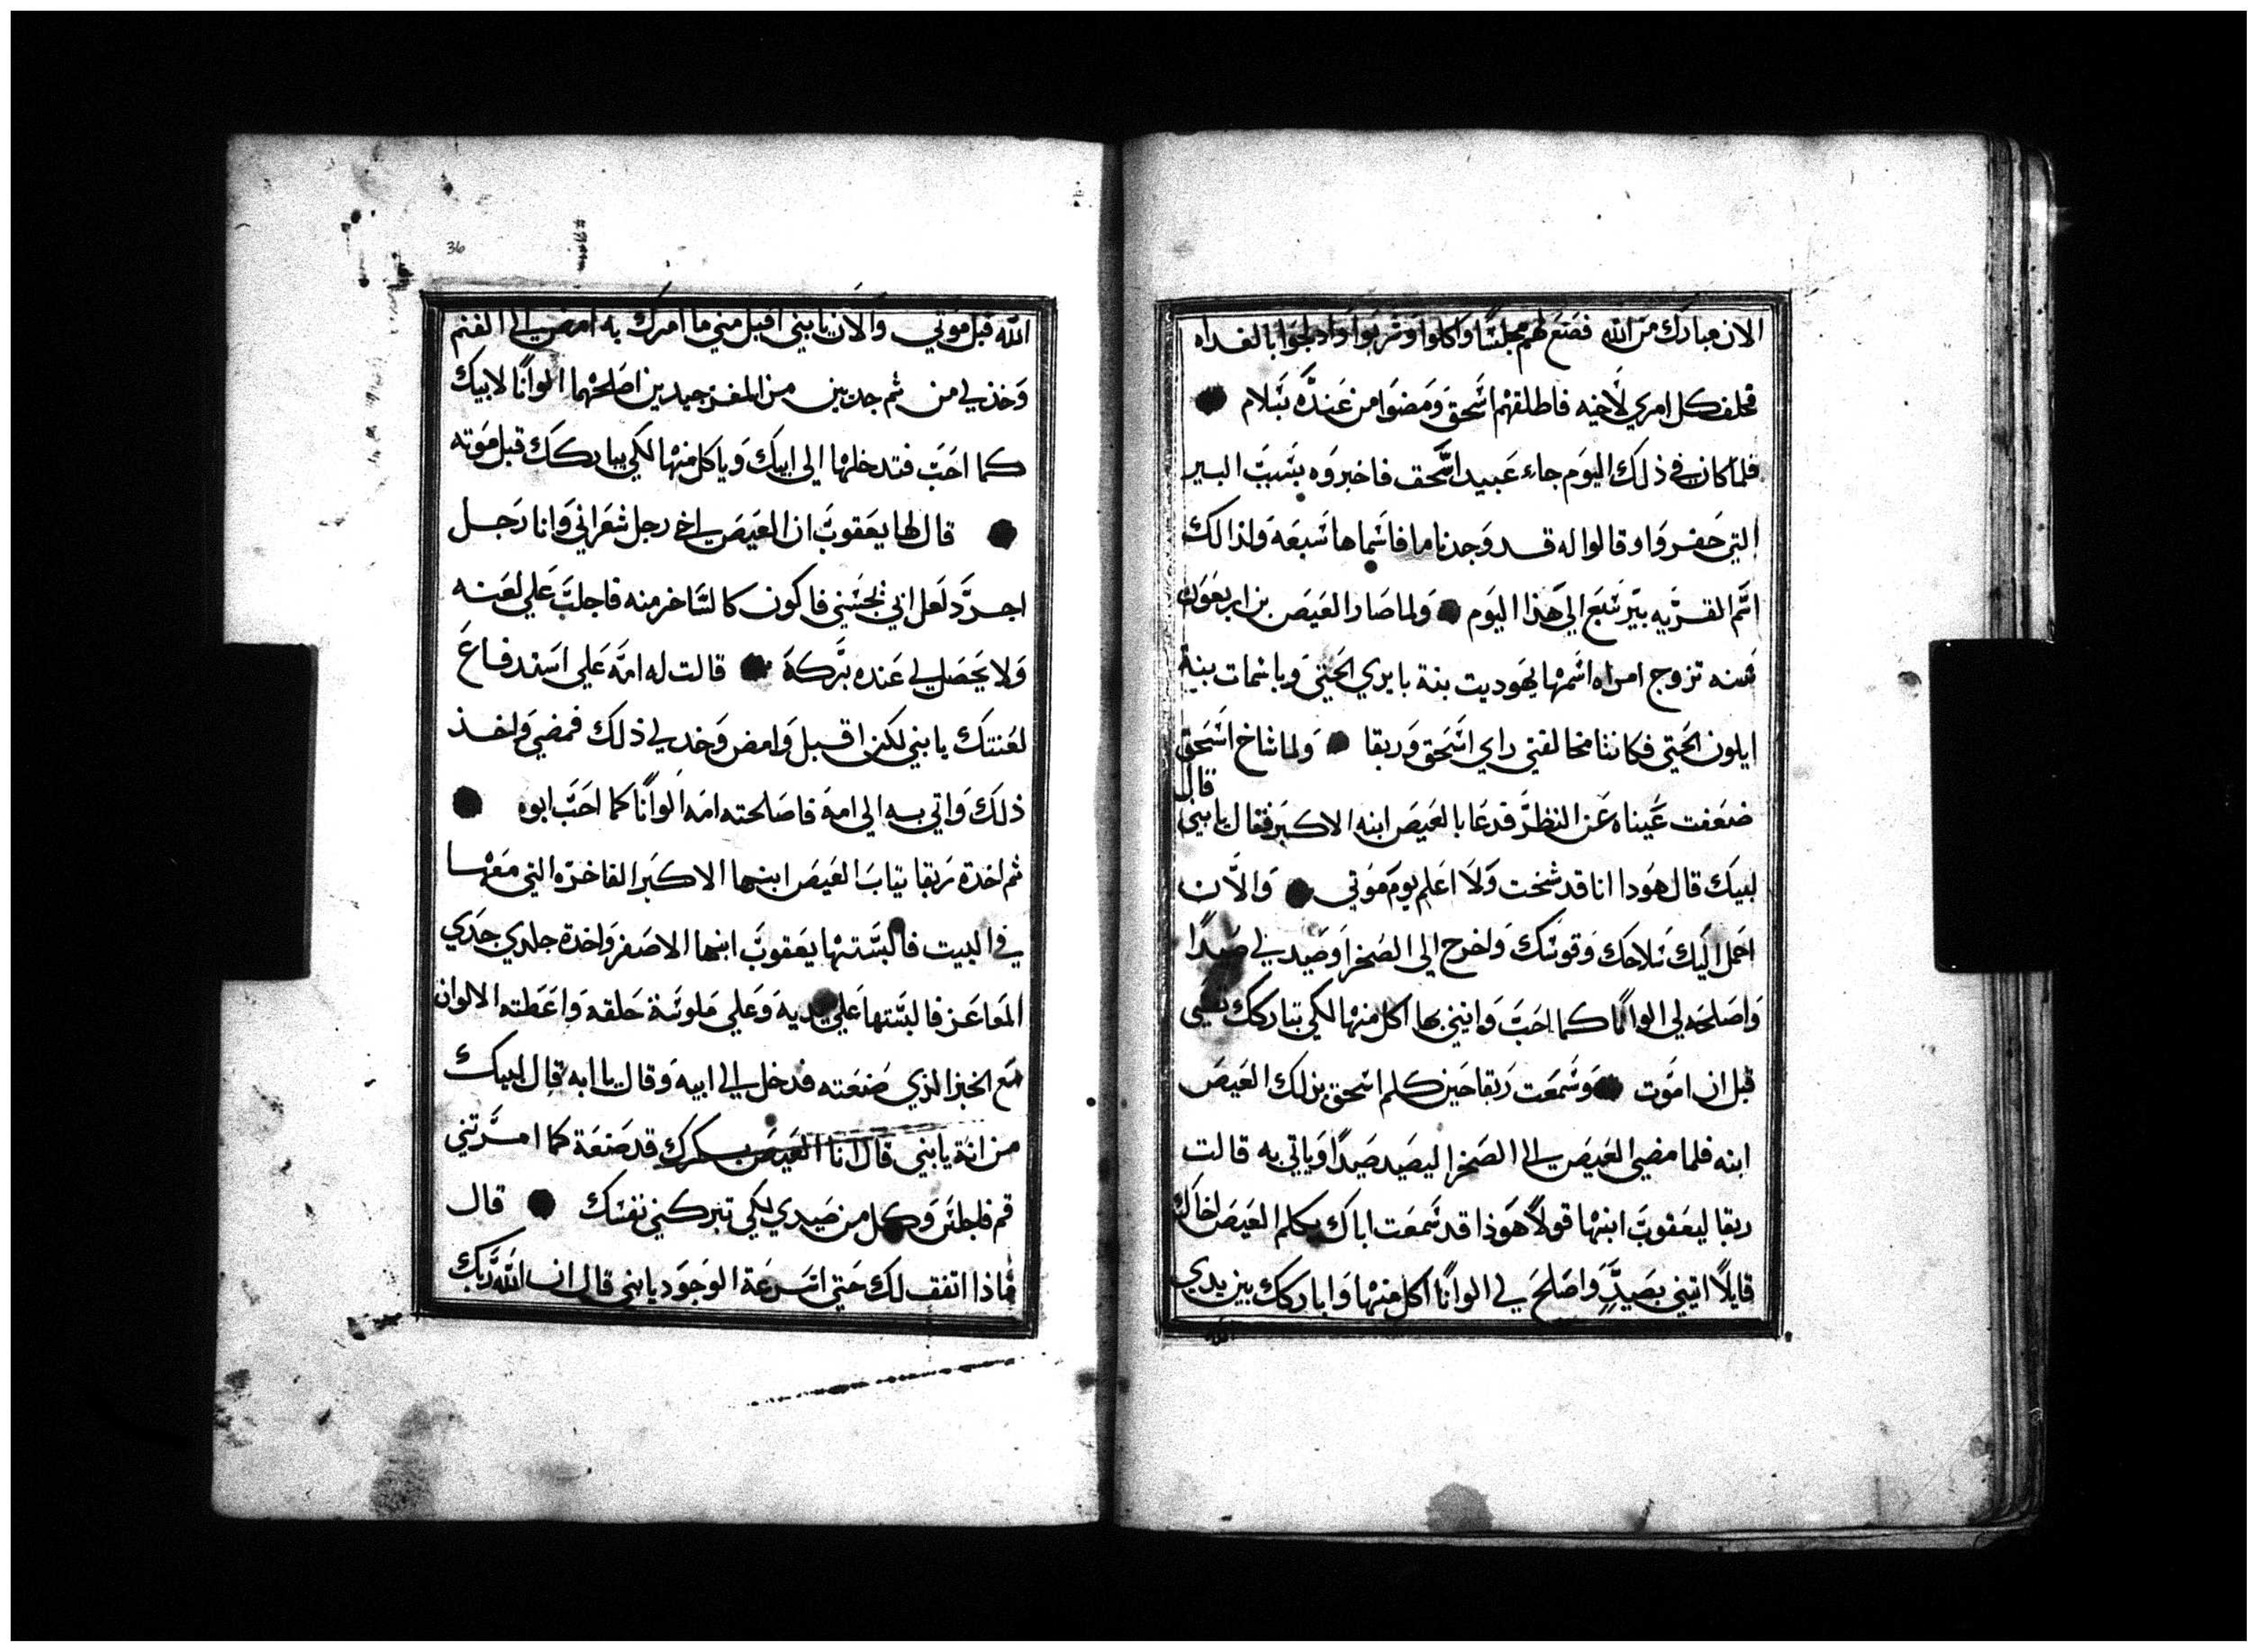 الان مبارك من الله فصنع لهم مجلسًا واكلوا وشربوا وادلجوا بالغداه
فحلف كل امري لاخيه فاطلقهم اسحق ومضوا من عنده بسلام
فلما كان في ذلك اليوم جاء عبيد اسحق فاخبروه بسبب البير
التي حفروا وقالوا له قد وجدنا ما فاسماها سبعه ولذالك
اسم القريه بير سبع الي هذا اليوم ولما صار العيص بن اربعون
سنه تزوج امراه اسمها يهوديت بنة بايري الحيتي وباسمات بنية
ايلون الحيتي فكانتا مخالفتي راي اسحق وربقا ولما شاخ اسحق
قال
ضعفت عيناه عن النظر فدعا بالعيص ابنه الاكبر فقال يا بني
لبيك قال هودا انا قد شخت ولا اعلم يوم موتي والان
احمل اليك سلاحك وقوسك واخرج الي الصحرا وصيد لي صيدًا
واصلحه لي الوانًا كما احب واتيني بها اكل منها لكي تباركك نفسي
قبل ان اموت وسمعت ربقا حين كلم اسحق بذلك العيص
ابنه فلما مضي العيص الي الصحرا ليصيد صيدًا وياتي به قالت
ربقا ليعقوب ابنها قولًا هوذا قد سمعت اباك يكلم العيص اخاك
قايلًا اتيني بصيد واصلح لي الوانًا اكل منها واباركك بين يدي
الله
36
الله قبل موتي والان يا بني اقبل مني ما امرك به امض الي الغنم
وخذ لي من ثم جديين من المعز جيدين اصلحهما الوانًا لابيك
كما احب فتدخلها الي ابيك وياكل منها لكي يباركك قبل موته
قال لها يعقوب ان العيص اخي رجل شعراني وانا رجل
اجرد لعل ابي يجسني فاكون كالساخر منه فاجلب علي لعنه
ولا يحصل لي عنده بركة قالت له امه علي استدفاع
لعنتك يا بني لكن اقبل وامض وخد لي ذلك فمضي واخذ
ذلك واتي به الي امه فاصلحته امه الوانًا كما احب ابوه
ثم اخدة ربقا ثياب العيص ابنها الاكبر الفاخره التي معها
في البيت فالبستها يعقوب ابنها الاصغر واخدة جلدي جدي
المعاعز فالبستها علي يديه وعلي ملوسة حلقه واعطته الالوان
مع الخبز الذي صنعته فدخل الي ابيه وقال يا ابه قال لبيك
من انة يا بني قال انا العيص بكرك قد صنعة كما امرتني
قم فاجلس وكل من صيدي لكي تبركني نفسك قال
ماذا اتفق لك حتي اسرعة الوجود يا بني قال ان الله ربك